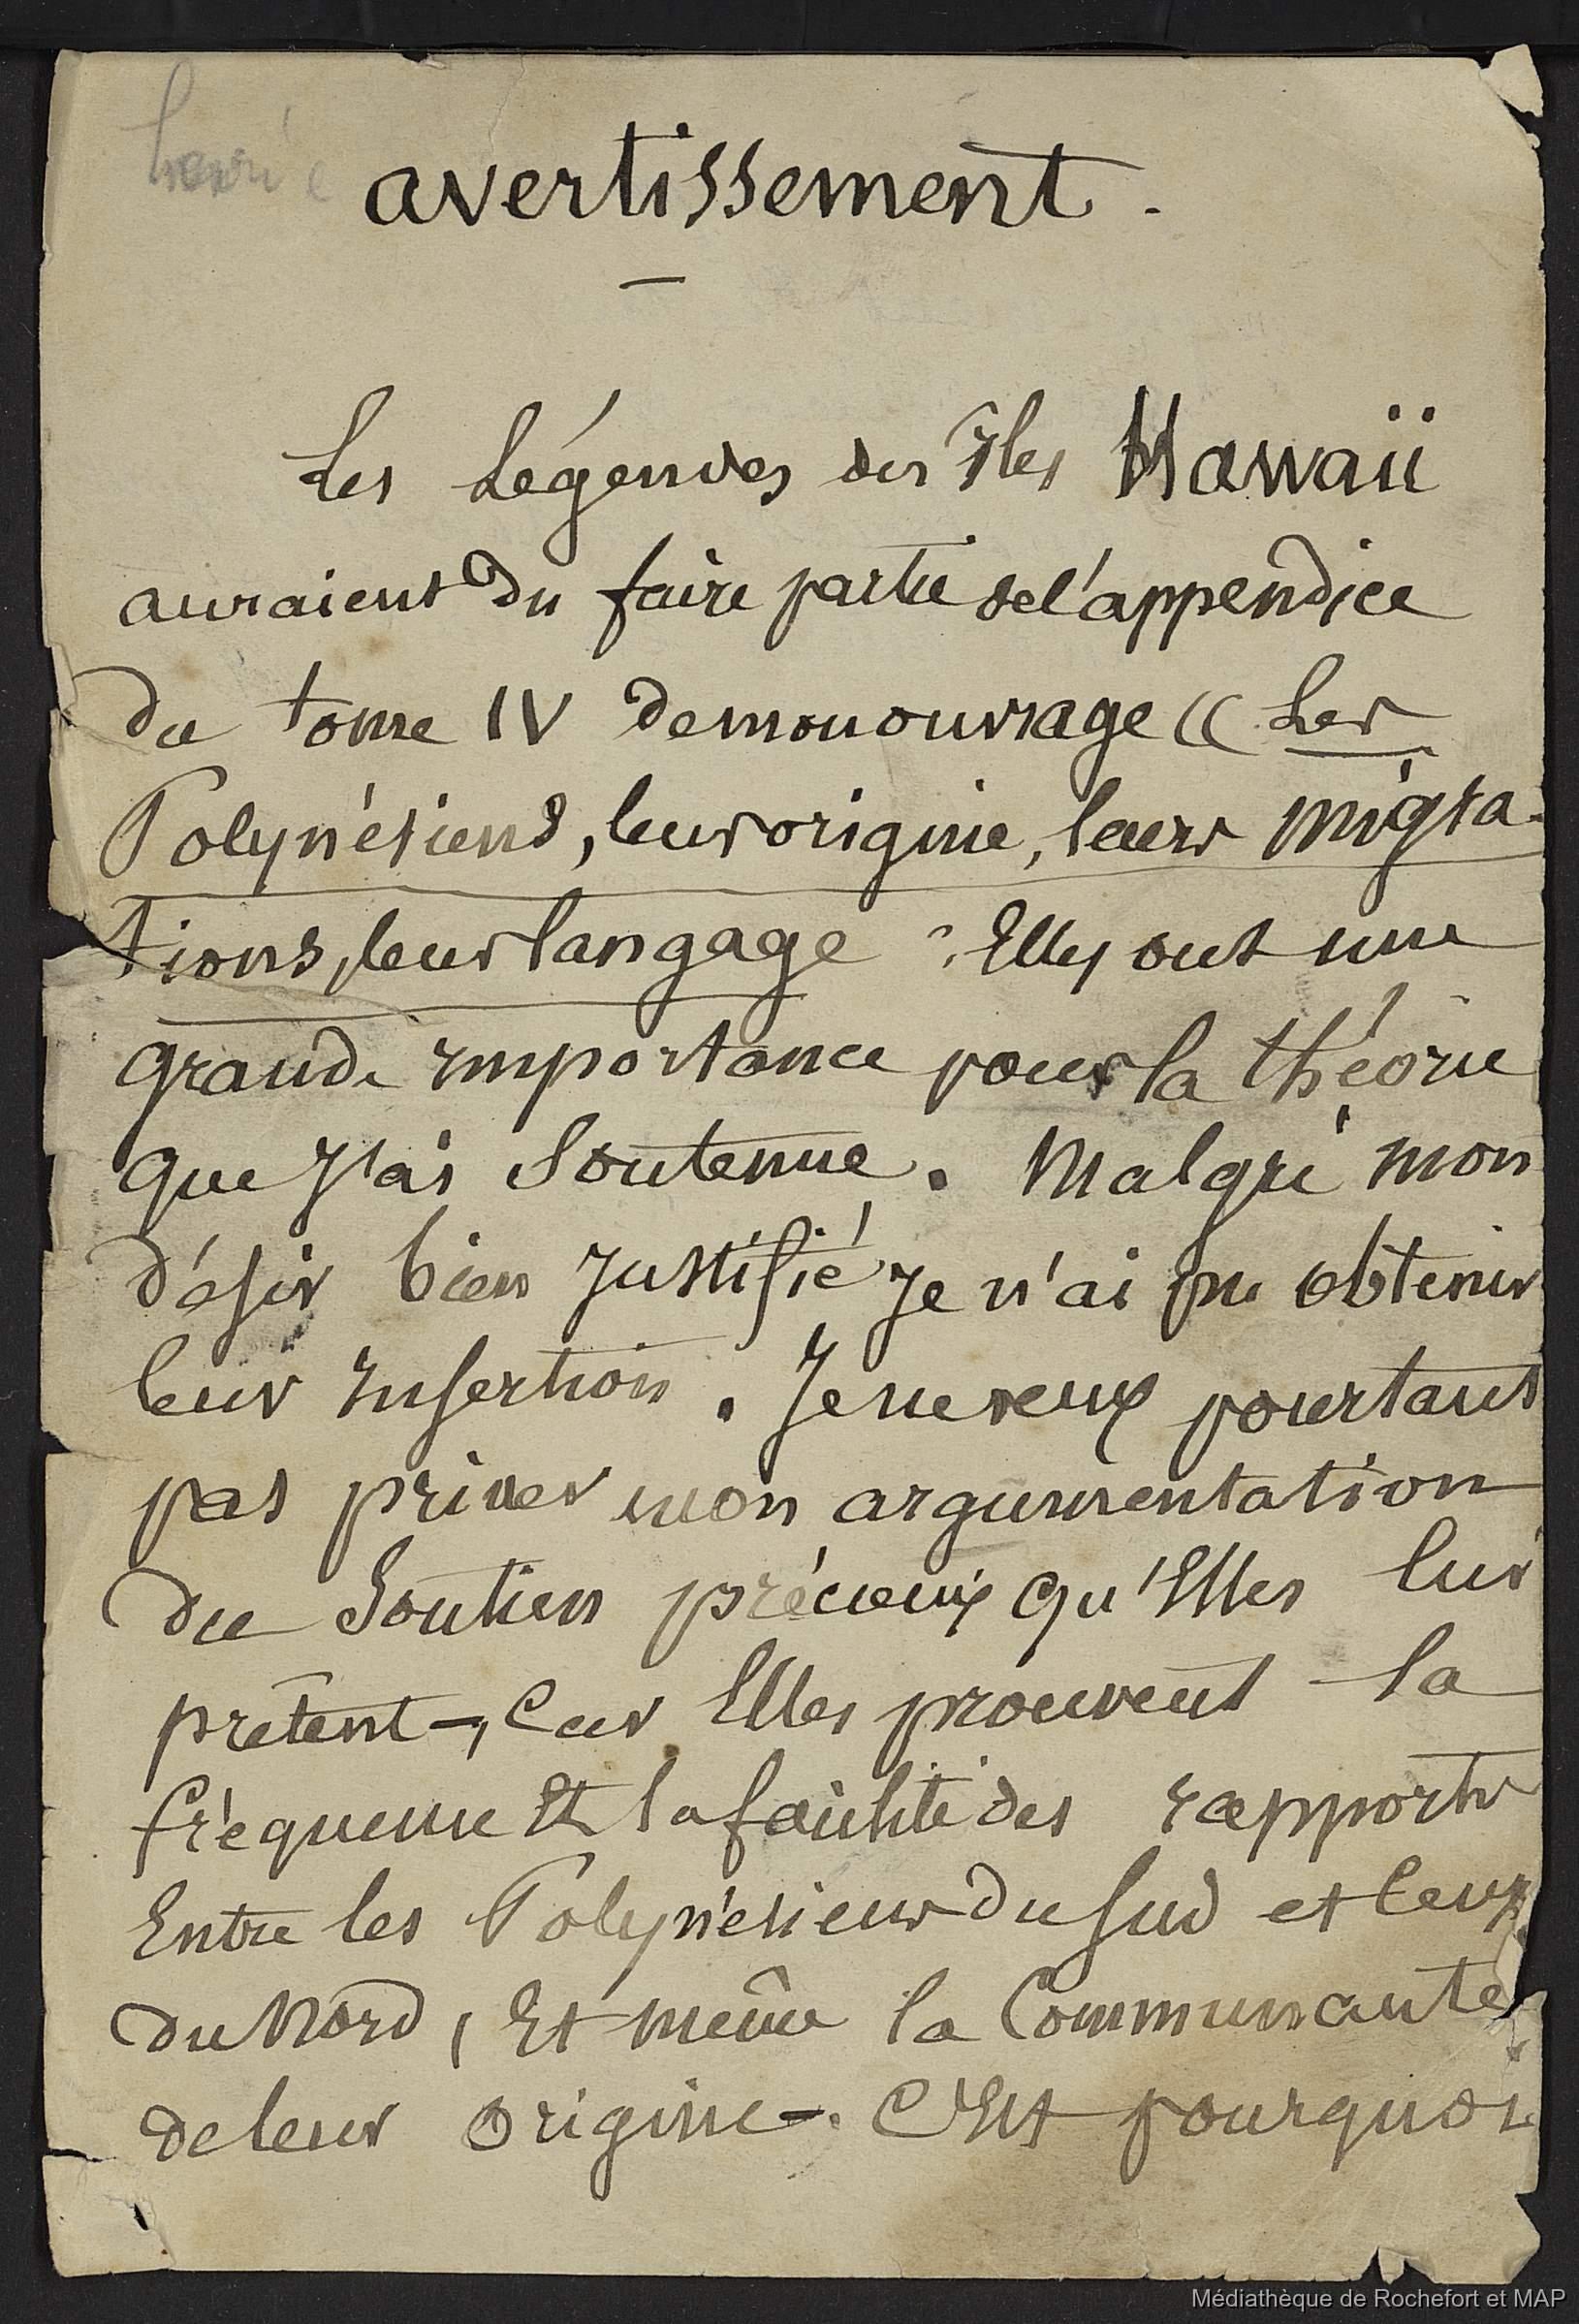 avertissement.
Les Légendes des îles Hawaii
auraient du faire partie de l'appendice
du tome IV de mon ouvrage « Les
Polynésiens, leur origine, leurs migra-
tions, leur langage. Elles ont une
grande importance pour la théorie
que j'ai soutenue. Malgré mon
désir bien justifié je n'ai pu obtenir
leur insertion. Je ne veux pourtant
pas priver mon argumentation
du soutien précieux qu'Elles lui
prêtent -, Car Elles prouvent la
fréquence Et la facilité des rapports
Entre les Polynésiens du sud et Ceux
du Nord, Et même la Communauté
de leur origine -. C'Est pourquoi
Médiathèque de Rochefort et MAP